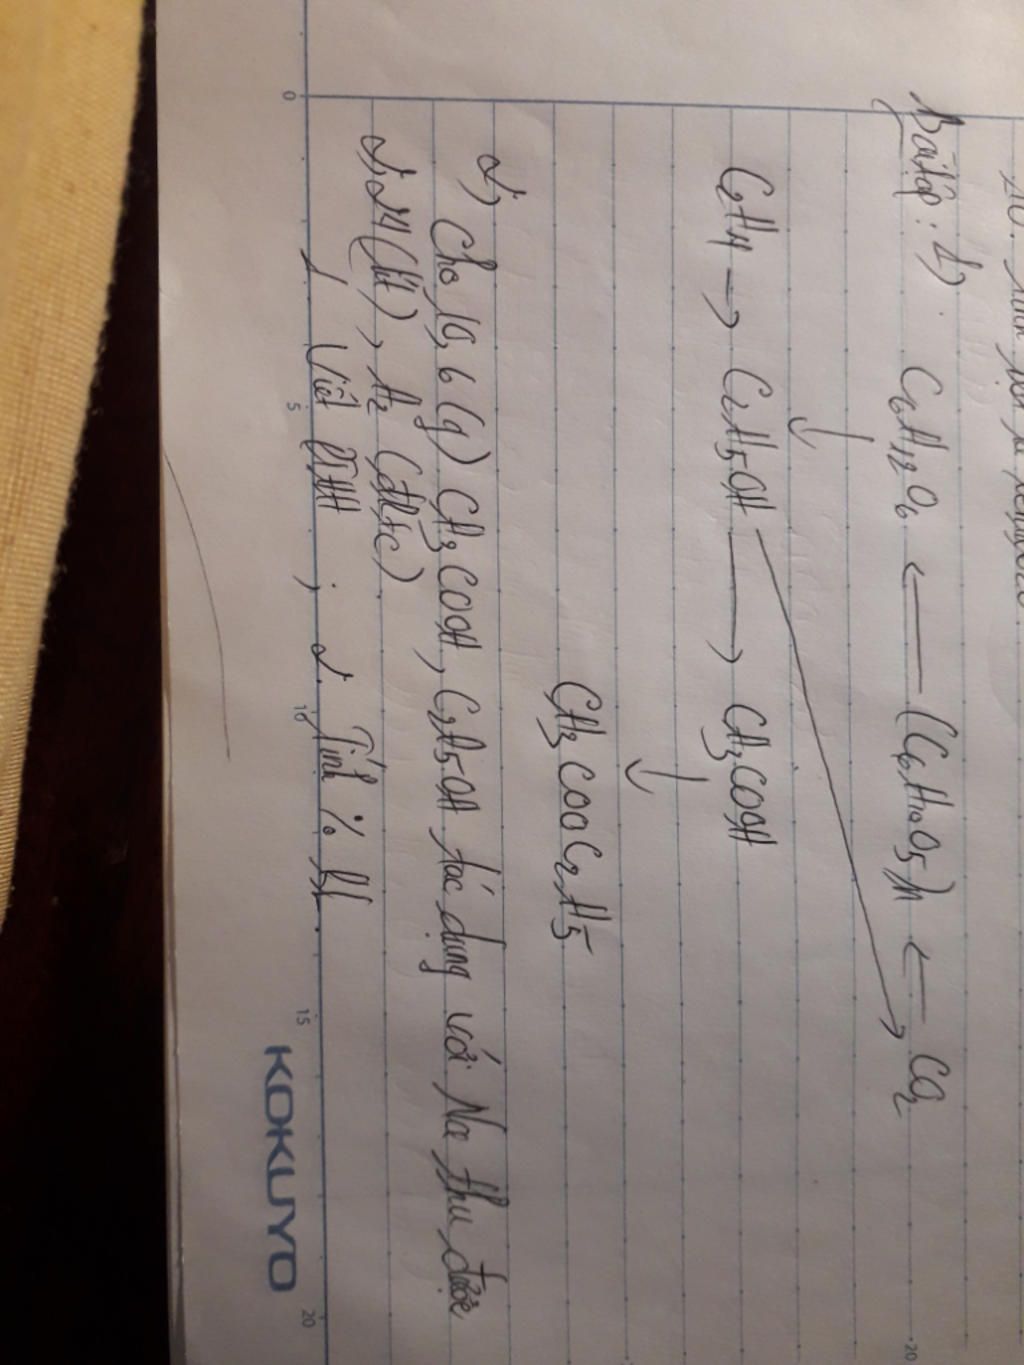 Bài tập: 1) C6H12O6 ← (C6H10O5)n ← CO2
↓
C2H4 → C2H5OH → CH3COOH
↓
CH3COOC2H5
2) Cho 10,6 (g) CH3COOH, C2H5OH tác dụng với Na thu được
2,24 (lít), H2 (đktc)
1, Viết PTHH ; 2. Tính % kl
0 5 10 15 20
KOKUYO
20